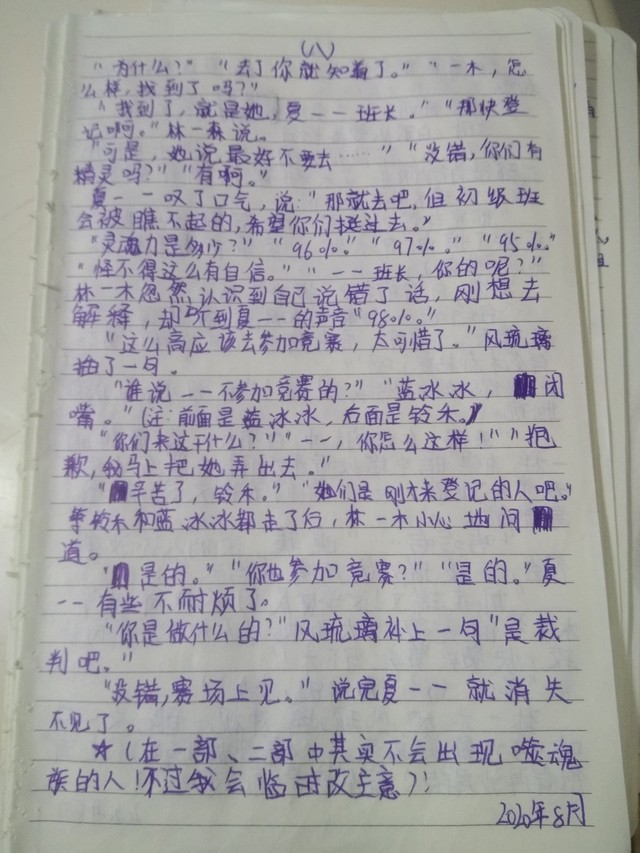 （八）
“为什么？”“去了你就知道了。”“一木，怎
么样，找到了吗？”
“找到了，就是她，夏一一班长。”“那快登
记啊。”林一森说。
“可是，她说最好不要去……”“没错，你们有
精灵吗？”“有啊。”
夏一一叹了口气，说：“那就去吧，但初级班
会被瞧不起的，希望你们挺过去。”
“灵魂力是多少？”“96%。”“97%。”“95%。”
“怪不得这么有自信。”“一一班长，你的呢？”
林一木忽然认识到自己说错了话，刚想去
解释，却听到夏一一的声音“98%。”
“这么高应该去参加竞赛，太可惜了。”风琉璃
插了一句。
“谁说一一不参加竞赛的？”“蓝冰冰，闭
嘴。”（注：前面是蓝冰冰，后面是铃禾。）
“你们来这干什么？”“一一，你怎么这样！”“抱
歉，我马上把她弄出去。”
“辛苦了，铃禾。”“她们是刚才来登记的人吧。”
等铃禾和蓝冰冰都走了后，林一木小心地问
道。
“是的。”“你也参加竞赛？”“是的。”夏
一一有些不耐烦了。
“你是做什么的？”风琉璃补上一句“是裁
判吧。”
“没错，赛场上见。”说完夏一一就消失
不见了。
☆（在一部、二部中其实不会出现噬魂
族的人！不过我会临时改主意）！
2020年8月